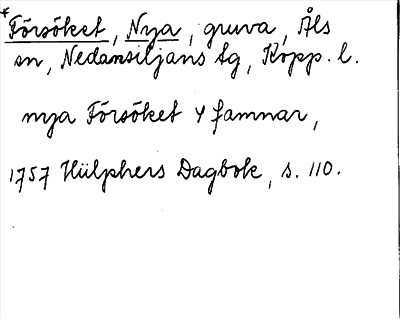 *Försöket, Nya, gruva, Åls
sn, Nedansiljans tg, Kopp. l.
nya Försöket 4 famnar,
1757 Hülphers Dagbok, s. 110.